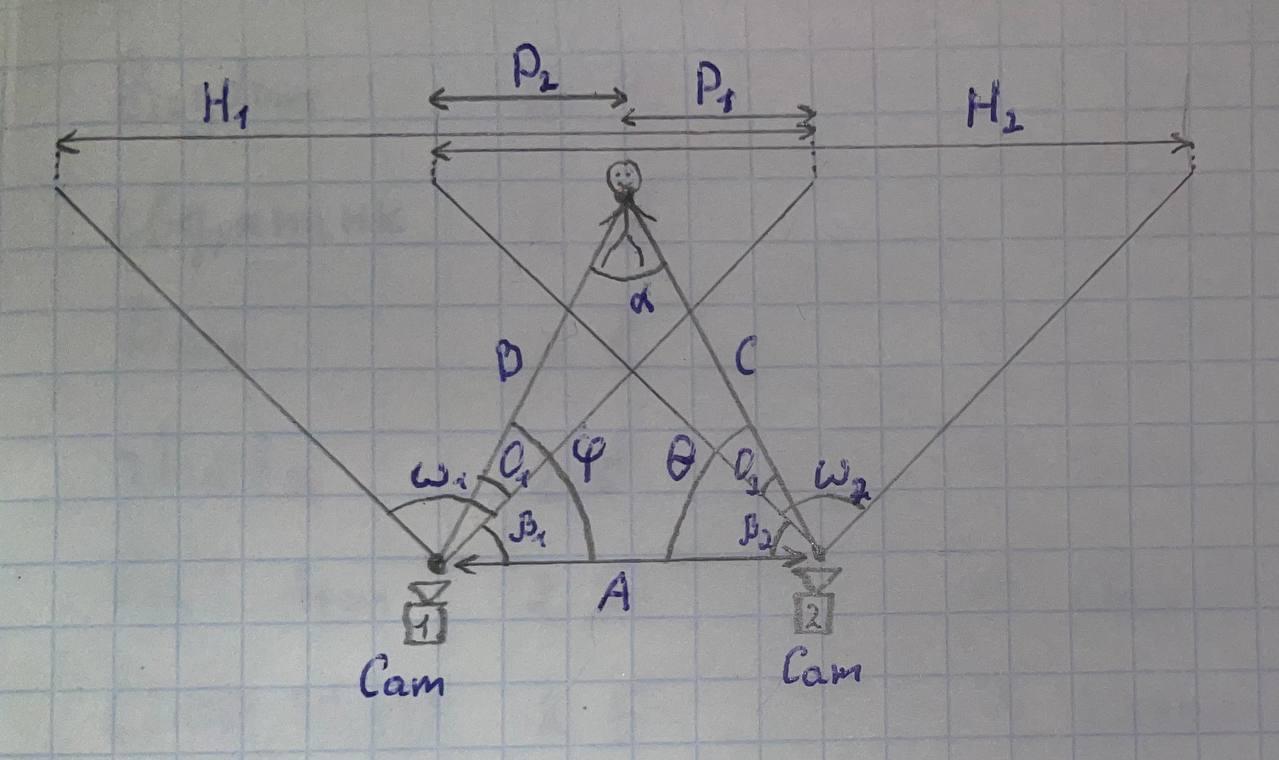 P₂
P₁
H₁
H₂
α
B
C
ω₁
O₁
φ
θ
O₂
ω₂
β₁
β₂
A
1
2
Cam
Cam